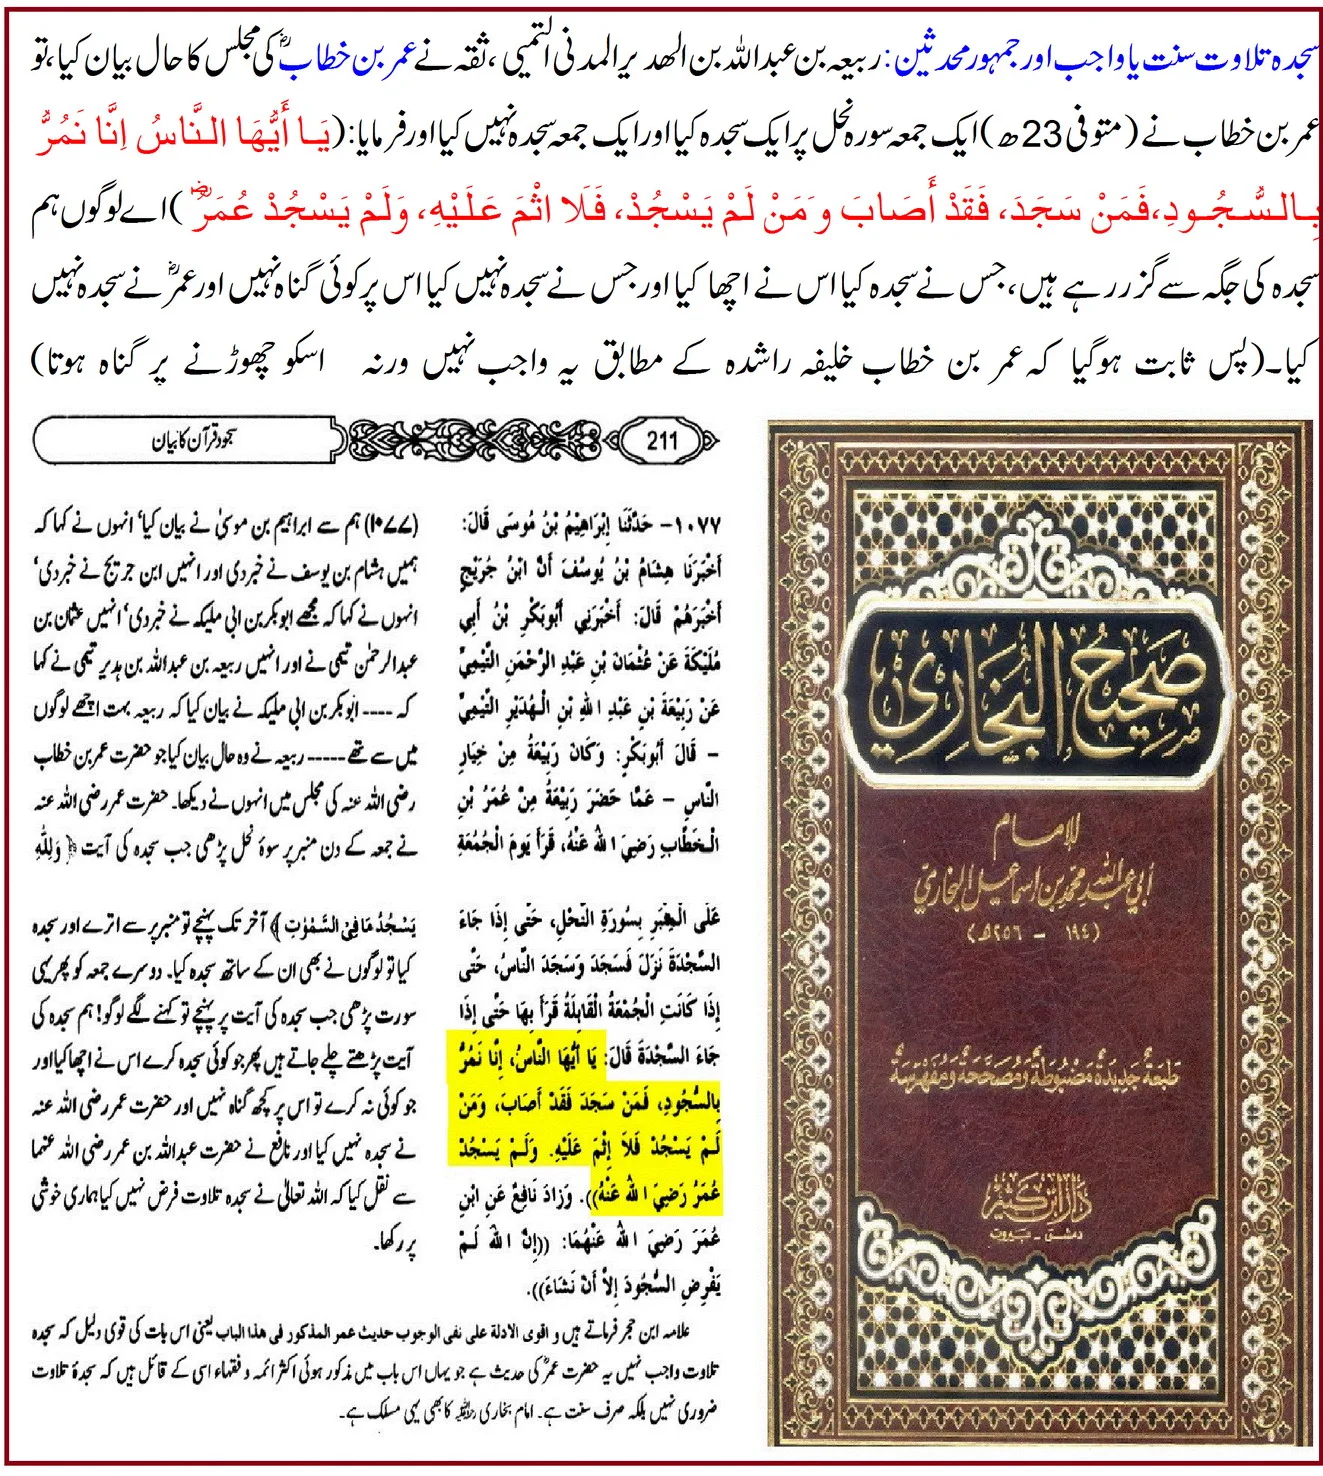 سجدہ تلاوت سنت یا واجب اور جمہور محدثین: ربیعہ بن عبداللہ بن الھدیر المدنی التمیمی، ثقہ نے عمر بن خطابؓ کی مجلس کا حال بیان کیا، تو
عمر بن خطاب نے (متوفی 23ھ) ایک جمعہ سورہ نحل پر ایک سجدہ کیا اور ایک جمعہ سجدہ نہیں کیا اور فرمایا: (يَا أَيُّهَا النَّاسُ اِنَّا نَمُرُّ
بِالسُّجُودِ، فَمَنْ سَجَدَ، فَقَدْ أَصَابَ وَمَنْ لَمْ يَسْجُدْ، فَلَا اثْمَ عَلَيْهِ، وَلَمْ يَسْجُدْ عُمَرُؓ) اے لوگوں ہم
سجدہ کی جگہ سے گزر رہے ہیں، جس نے سجدہ کیا اس نے اچھا کیا اور جس نے سجدہ نہیں کیا اس پر کوئی گناہ نہیں اور عمرؓ نے سجدہ نہیں
کیا۔ (پس ثابت ہوگیا کہ عمر بن خطاب خلیفہ راشدہ کے مطابق یہ واجب نہیں ورنہ اسکو چھوڑنے پر گناہ ہوتا)
211
سجود قرآن کا بیان
١٠٧٧- حَدَّثَنَا إِبْرَاهِيْمُ بْنُ مُوسَى قَالَ:
أَخْبَرَنَا هِشَامُ بْنُ يُوسُفَ أَنَّ ابْنَ جُرَيْجٍ
أَخْبَرَهُمْ قَالَ: أَخْبَرَنِي أَبُوبَكْرِ بْنُ أَبِي
مُلَيْكَةَ عَنْ عُثْمَانَ بْنِ عَبْدِ الرَّحْمَنِ التَّيْمِيِّ
عَنْ رَبِيْعَةَ بْنِ عَبْدِ اللهِ بْنِ الْهُدَيْرِ التَّيْمِيِّ
– قَالَ أَبُوبَكْرٍ: وَكَانَ رَبِيْعَةُ مِنْ خِيَارِ
النَّاسِ – عَمَّا حَضَرَ رَبِيْعَةُ مِنْ عُمَرَ بْنِ
الْخَطَّابِ رَضِيَ اللهُ عَنْهُ، قَرَأَ يَومَ الْجُمُعَةِ
عَلَى الْمِنْبَرِ بِسُورَةِ النَّحْلِ، حَتَّى إِذَا جَاءَ
السَّجْدَةَ نَزَلَ فَسَجَدَ وَسَجَدَ النَّاسُ، حَتَّى
إِذَا كَانَتِ الْجُمُعَةُ الْقَابِلَةُ قَرَأَ بِهَا حَتَّى إِذَا
جَاءَ السَّجْدَةَ قَالَ: يَا أَيُّهَا النَّاسُ، إِنَّا نَمُرُّ
بِالسُّجُودِ، فَمَنْ سَجَدَ فَقَدْ أَصَابَ، وَمَنْ
لَمْ يَسْجُدْ فَلاَ إِثْمَ عَلَيْهِ. وَلَمْ يَسْجُدْ
عُمَرُ رَضِيَ اللهُ عَنْهُ)). وَزَادَ نَافِعٌ عَنِ ابْنِ
عُمَرَ رَضِيَ اللهُ عَنْهُمَا: ((إِنَّ اللهَ لَمْ
يَفْرِضِ السُّجُودَ إِلاَّ أَنْ نَشَاءَ)).
(١٠٧٧) ہم سے ابراہیم بن موسیٰ نے بیان کیا‘ انہوں نے کہا کہ
ہمیں ہشام بن یوسف نے خبر دی اور انہیں ابن جریج نے خبر دی‘
انہوں نے کہا کہ مجھے ابوبکر بن ابی ملیکہ نے خبر دی‘ انہیں عثمان بن
عبدالرحمٰن تیمی نے اور انہیں ربیعہ بن عبداللہ بن ہدیر تیمی نے کہا
کہ ---- ابوبکر بن ابی ملیکہ نے بیان کیا کہ ربیعہ بہت اچھے لوگوں
میں سے تھے ----- ربیعہ نے وہ حال بیان کیا جو حضرت عمر بن خطاب
رضی اللہ عنہ کی مجلس میں انہوں نے دیکھا۔ حضرت عمر رضی اللہ عنہ
نے جمعہ کے دن منبر پر سورۂ نحل پڑھی جب سجدہ کی آیت ﴿ وَلِلّٰهِ
يَسْجُدُ مَا فِي السَّمٰوٰتِ ﴾ آخر تک پہنچے تو منبر پر سے اترے اور سجدہ
کیا تو لوگوں نے بھی ان کے ساتھ سجدہ کیا۔ دوسرے جمعہ کو پھر یہی
سورت پڑھی جب سجدہ کی آیت پر پہنچے تو کہنے لگے لوگو! ہم سجدہ کی
آیت پڑھتے چلے جاتے ہیں پھر جو کوئی سجدہ کرے اس نے اچھا کیا اور
جو کوئی نہ کرے تو اس پر کچھ گناہ نہیں اور حضرت عمر رضی اللہ عنہ
نے سجدہ نہیں کیا اور نافع نے حضرت عبداللہ بن عمر رضی اللہ عنہما
سے نقل کیا کہ اللہ تعالیٰ نے سجدہ تلاوت فرض نہیں کیا ہماری خوشی
پر رکھا۔
علامہ ابن حجر فرماتے ہیں و اقوی الادلة على نفى الوجوب حديث عمر المذكور فى هذا الباب یعنی اس بات کی قوی دلیل کہ سجدہ
تلاوت واجب نہیں یہ حضرت عمرؓ کی حدیث ہے جو یہاں اس باب میں مذکور ہوئی اکثر ائمہ و فقہاء اسی کے قائل ہیں کہ سجدۂ تلاوت
ضروری نہیں بلکہ صرف سنت ہے۔ امام بخاری رحمہ اللہ کا بھی یہی مسلک ہے۔
صَحِيحُ البُخَارِي
للإمام
أبي عبد الله محمد بن اسماعيل البخاري
(١٩٤ - ٢٥٦ هـ)
طَبعَة جَديدَة مَضبُوطَة وَمُصَحَّحَة وَمُفَهرَسَة
دار ابن كثير
دمشق - بيروت